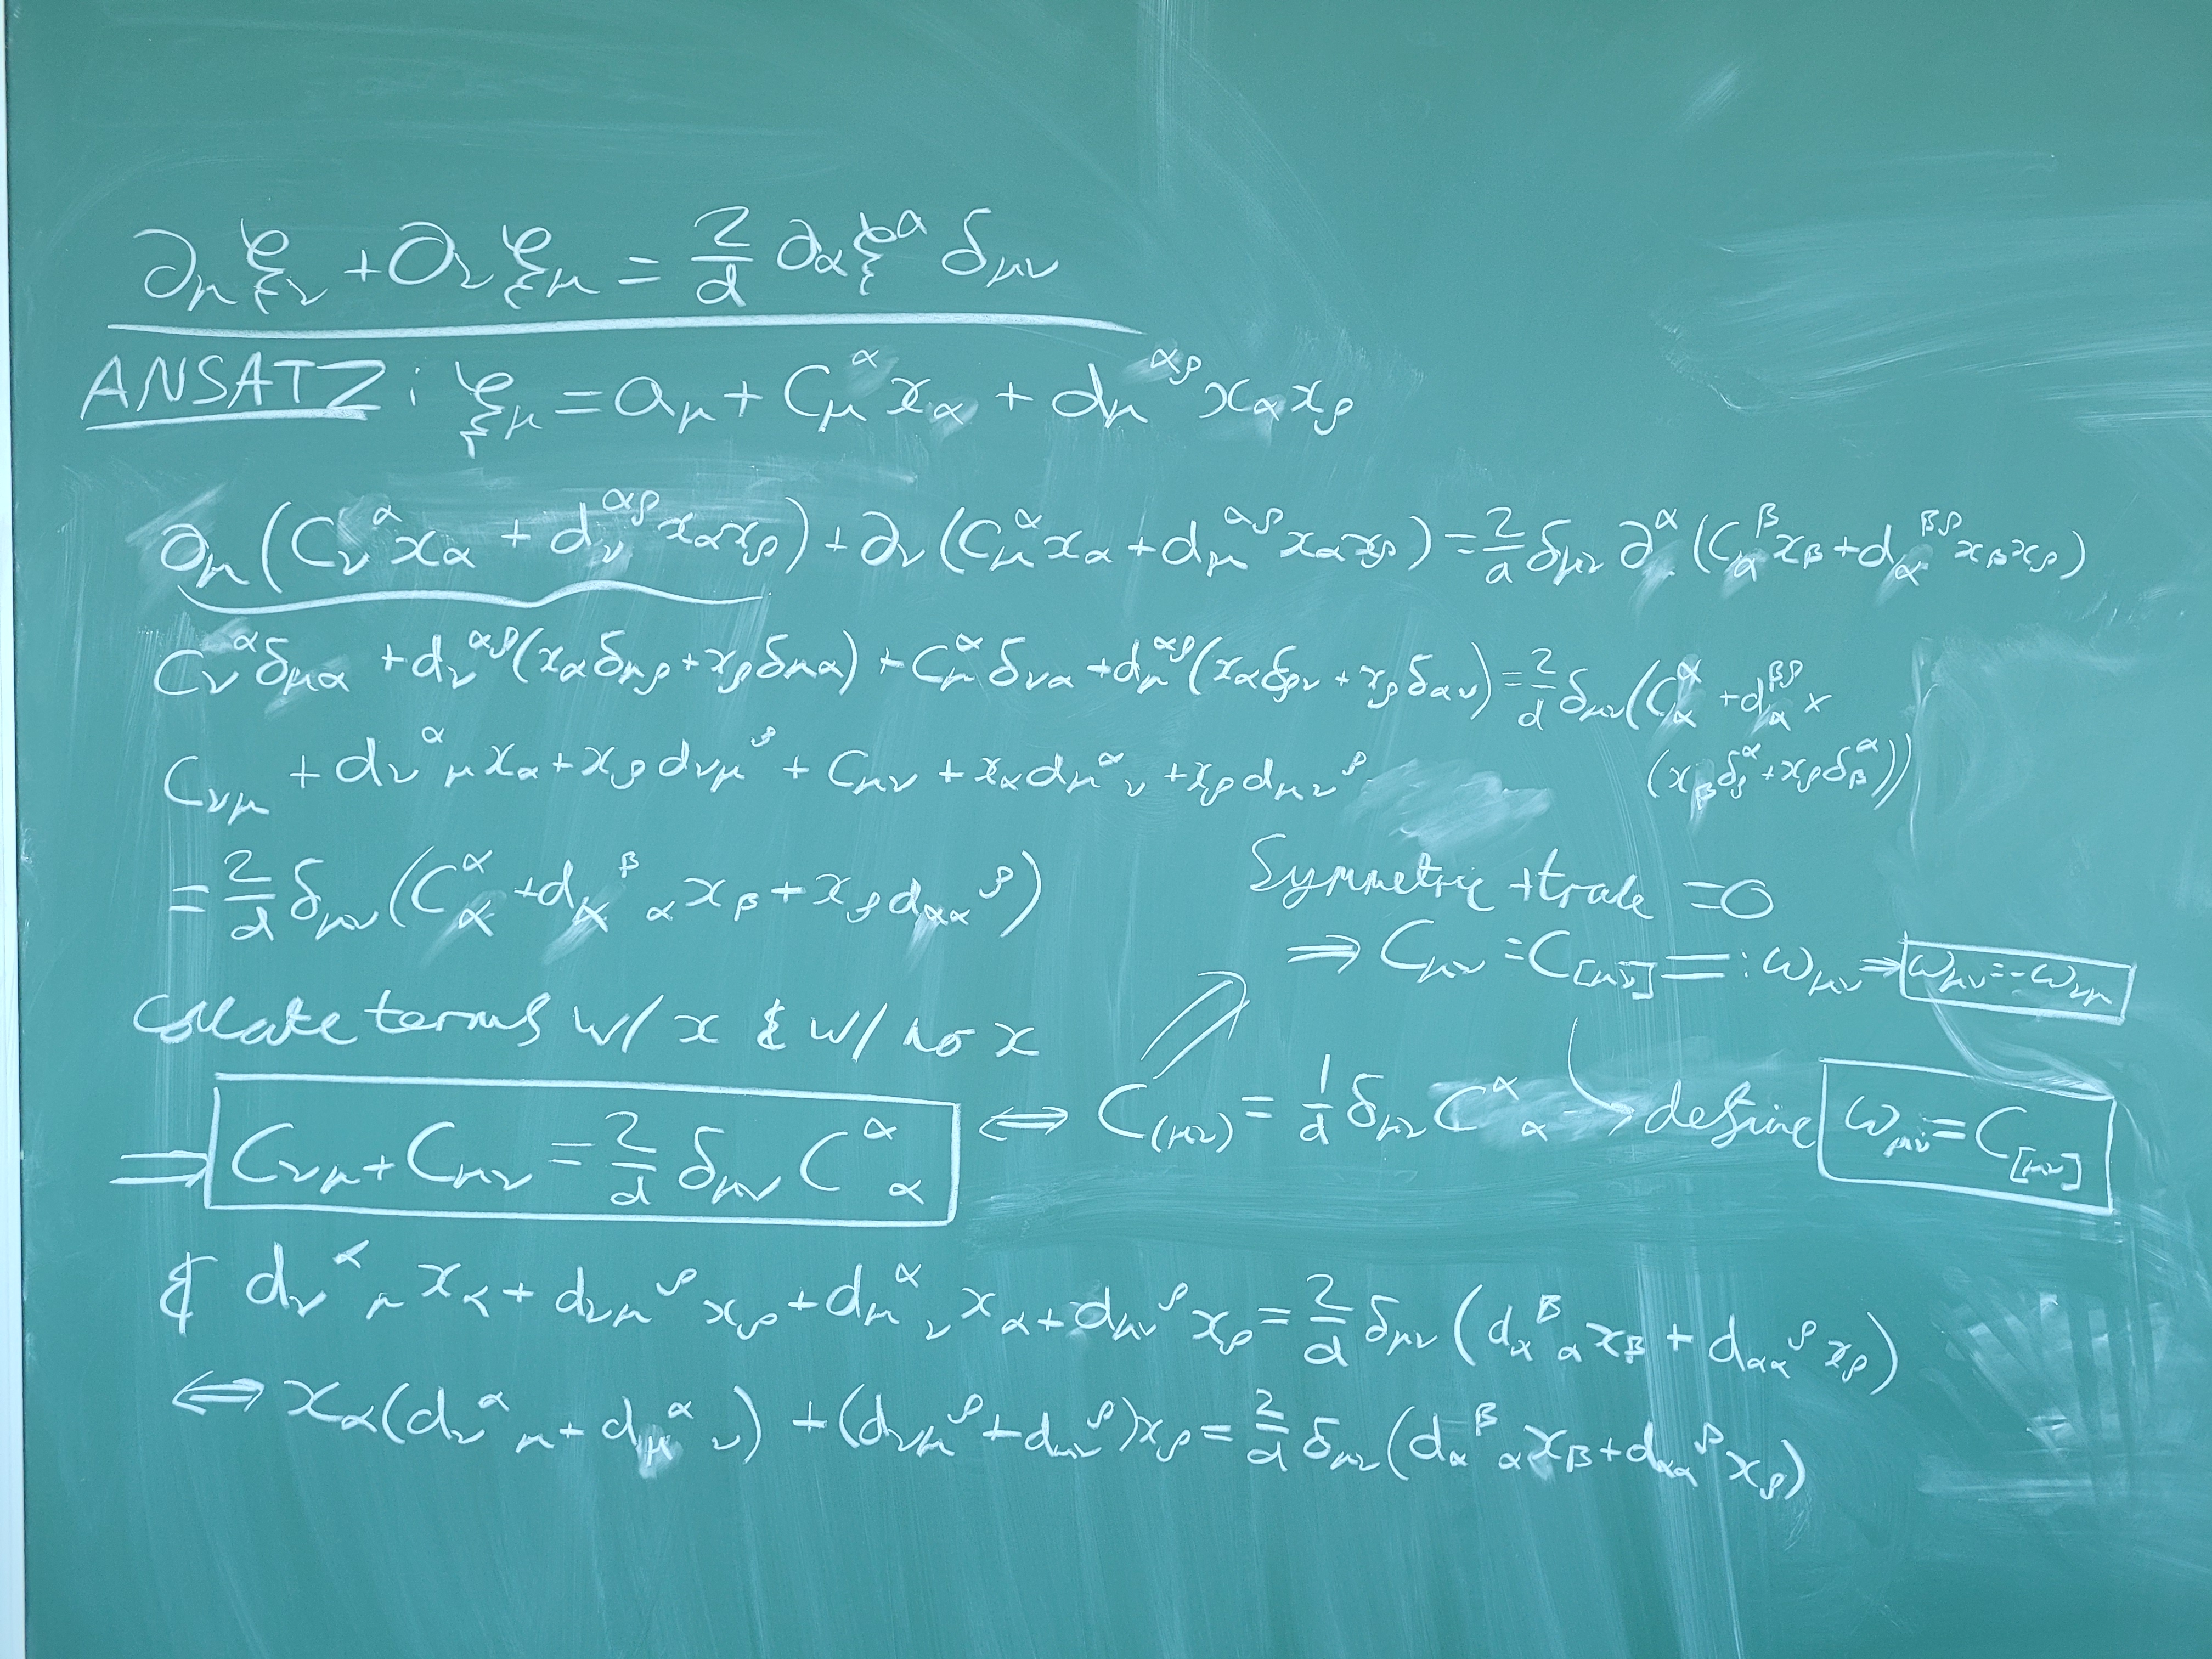 ∂_μ ξ_ν + ∂_ν ξ_μ = 2/d ∂_α ξ^α δ_μν
ANSATZ: ξ_μ = a_μ + C_μ^α x_α + d_μ^αρ x_α x_ρ
∂_μ (C_ν^α x_α + d_ν^αρ x_α x_ρ) + ∂_ν (C_μ^α x_α + d_μ^αρ x_α x_ρ) = 2/d δ_μν ∂^α (C_α^β x_β + d_α^βρ x_β x_ρ)
C_ν^α δ_μα + d_ν^αρ (x_α δ_μρ + x_ρ δ_μα) + C_μ^α δ_να + d_μ^αρ (x_α δ_ρν + x_ρ δ_αν) = 2/d δ_μν (C_α^α + d_α^βρ ×
(x_β δ_ρ^α + x_ρ δ_β^α))
C_νμ + d_ν^α_μ x_α + x_ρ d_νμ^ρ + C_μν + x_α d_μ^α_ν + x_ρ d_μν^ρ
= 2/d δ_μν (C_α^α + d_α^β_α x_β + x_ρ d_αα^ρ)
Symmetric + trace = 0
⇒ C_μν = C_[μν] =: ω_μν ⇒ ω_μν = -ω_νμ
collate terms w/ x & w/ no x
⇒ C_νμ + C_μν = 2/d δ_μν C^α_α ⇔ C_(μν) = 1/d δ_μν C^α_α → define ω_μν = C_[μν]
& d_ν^α_μ x_α + d_νμ^ρ x_ρ + d_μ^α_ν x_α + d_μν^ρ x_ρ = 2/d δ_μν (d_α^β_α x_β + d_αα^ρ x_ρ)
⇔ x_α (d_ν^α_μ + d_μ^α_ν) + (d_νμ^ρ + d_μν^ρ) x_ρ = 2/d δ_μν (d_α^β_α x_β + d_αα^ρ x_ρ)